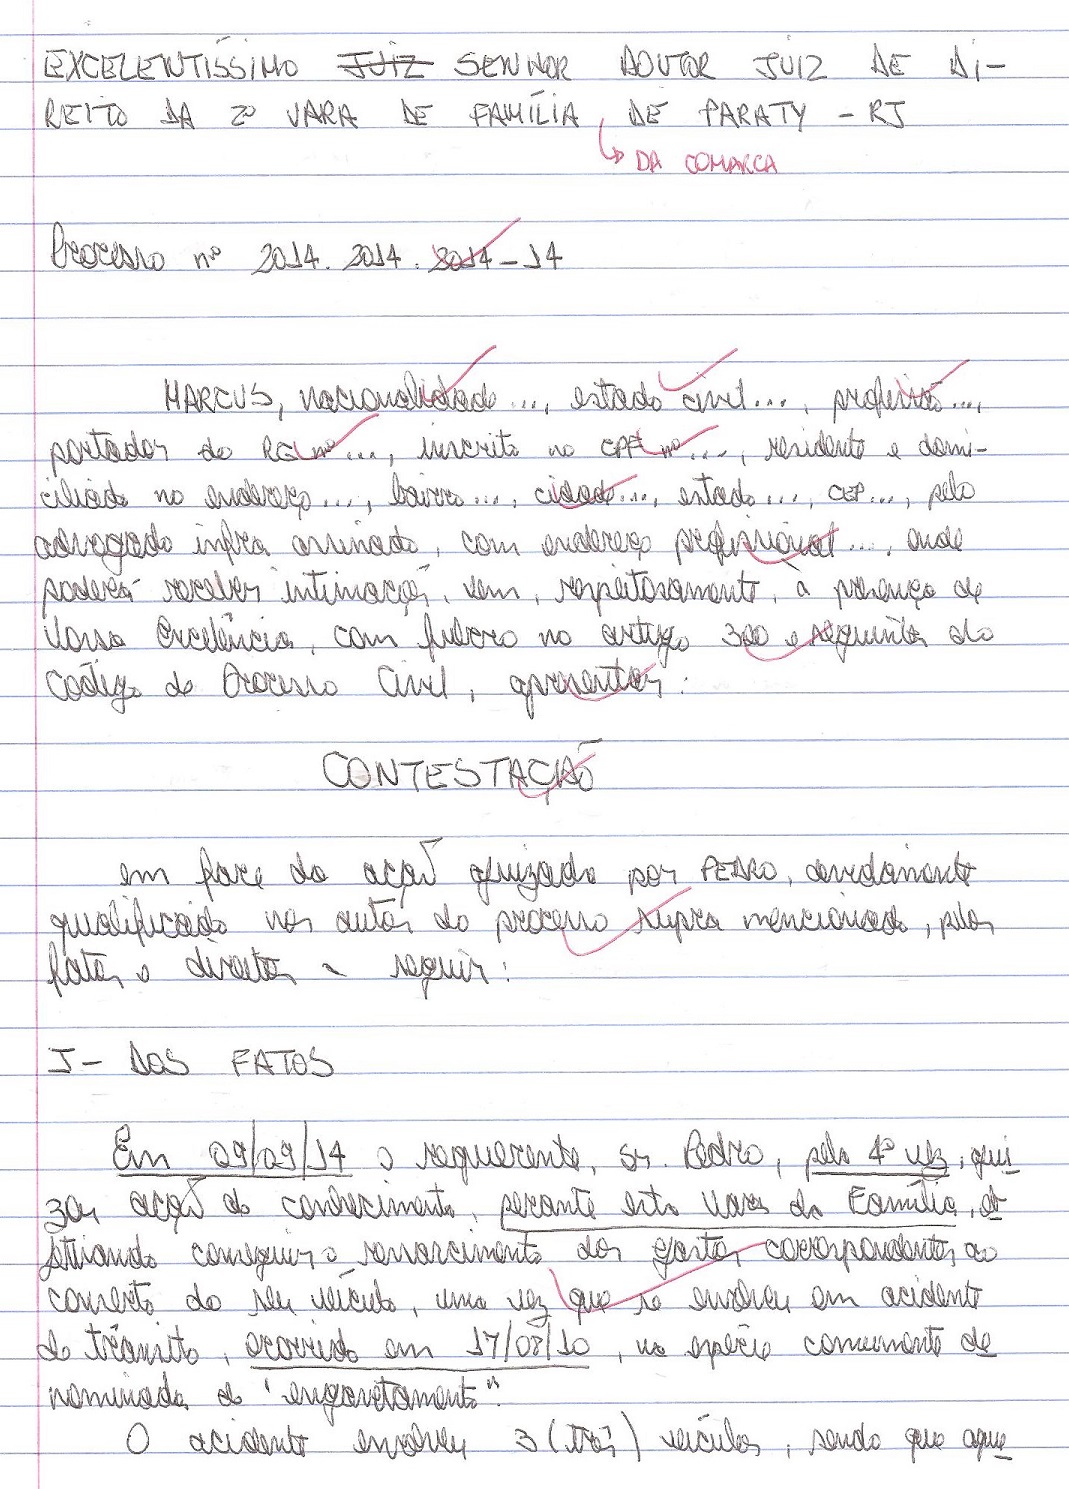 EXCELENTÍSSIMO JUIZ SENHOR DOUTOR JUIZ DE DI-
REITO DA 2ª VARA DE FAMÍLIA, DE PARATY - RJ
DA COMARCA
Processo nº 2014.2014.2014-14
MARCUS, nacionalidade ..., estado civil ..., profissão ...,
portador do RG nº ..., inscrito no CPF nº ..., residente e domi-
ciliado no endereço ..., bairro ..., cidade ..., estado ..., CEP ..., pelo
advogado infra assinado, com endereço profissional ..., onde
poderá receber intimação, vem, respeitosamente, à presença de
Vossa Excelência, com fulcro no artigo 300 e seguintes do
Código de Processo Civil, apresentar:
CONTESTAÇÃO
em face da ação ajuizada por PEDRO, devidamente
qualificado nos autos do processo supra mencionado, pelos
fatos e direitos a seguir:
I - DOS FATOS
Em 09/09/14 o requerente, Sr. Pedro, pela 4ª vez, ajui
zou ação de conhecimento, perante esta Vara de Família, ob
jetivando conseguir o ressarcimento dos gastos correspondentes ao
conserto do seu veículo, uma vez que se envolveu em acidente
de trânsito, ocorrido em 17/08/10, na espécie comumente de
nominada de "engavetamento".
O acidente envolveu 3 (três) veículos, sendo que aque